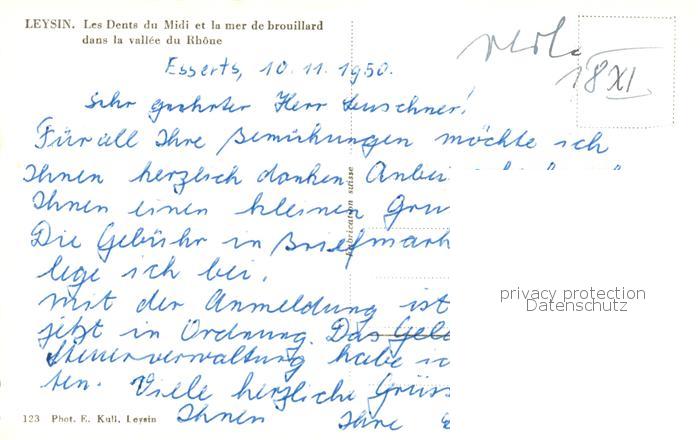 LEYSIN. Les Dents du Midi et la mer de brouillard
dans la vallée du Rhône
18 XI
Esserts, 10.11.1950.
Sehr geehrter Herr Leuschner!
Für all Ihre Bemühungen möchte ich
Ihnen herzlich danken. Anbei
Ihnen einen kleinen Gru
Die Gebühr in Briefmark
lege ich bei.
Mit der Anmeldung ist
jetzt in Ordnung. Das Geld
Steuerverwaltung habe ic
ten. Viele herzliche Grüss
Ihnen Ihre
Fabrication suisse
privacy protection
Datenschutz
123 Phot. E. Kull, Leysin